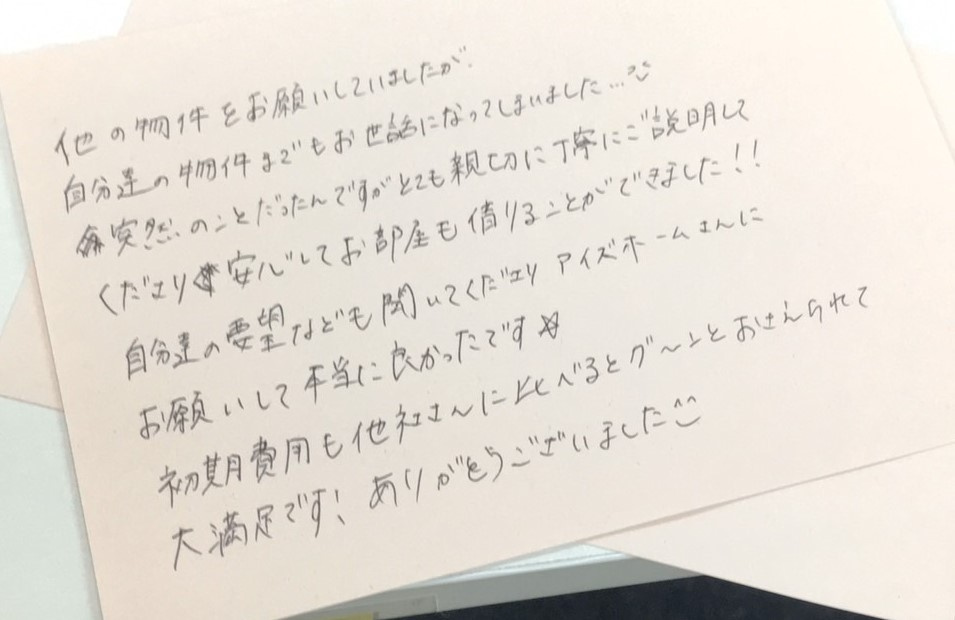 他の物件をお願いしていましたが、
自分達の物件までもお世話になってしまいました…
突然のことだったんですがとても親切に丁寧にご説明して
くださり安心してお部屋も借りることができました!!
自分達の要望なども聞いてくださりアイズホームさんに
お願いして本当に良かったです☆
初期費用も他社さんに比べるとグ〜ンとおさえられて
大満足です!ありがとうございました^^